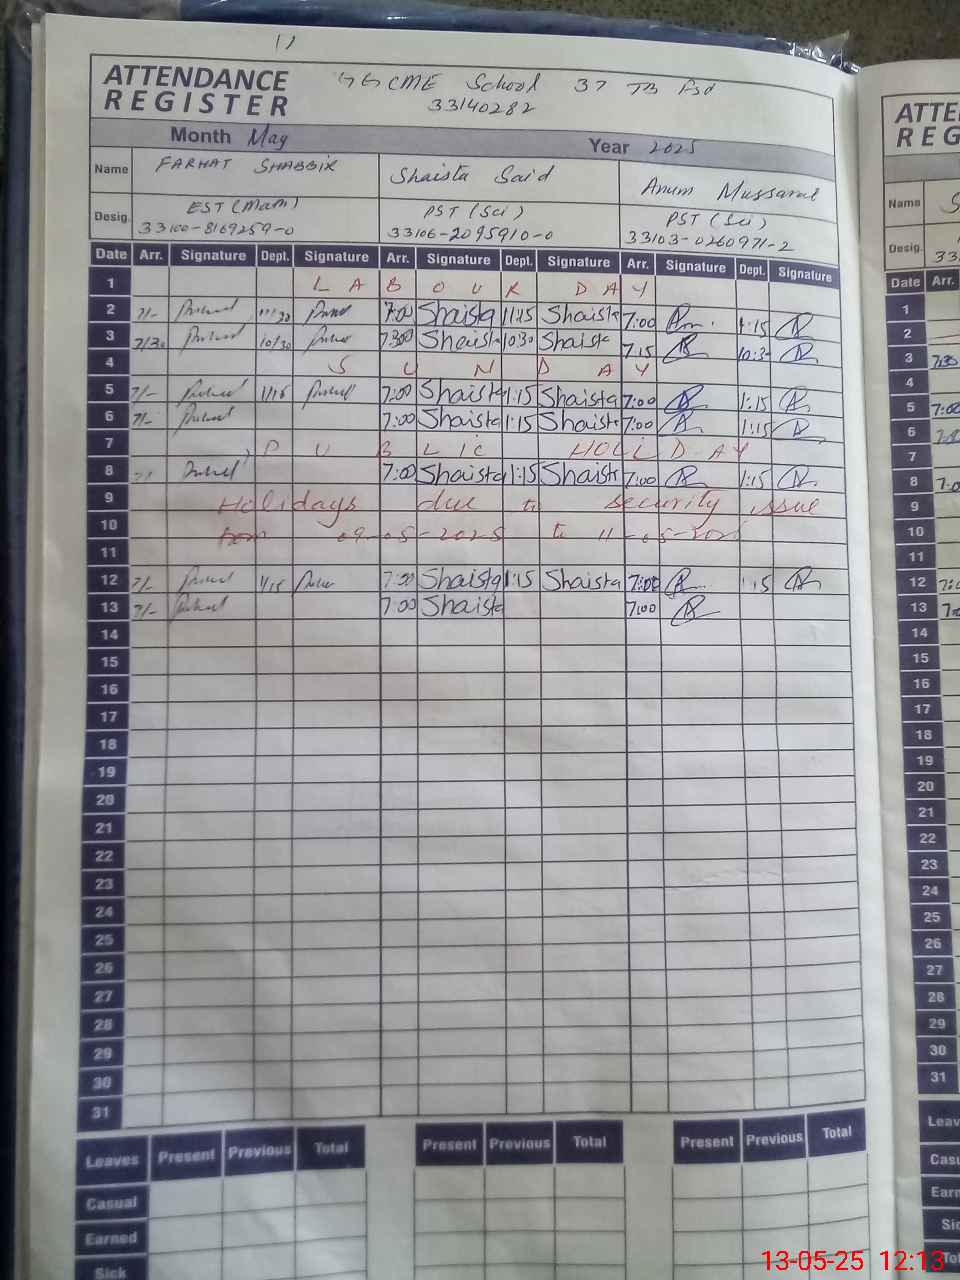 11
ATTENDANCE REGISTER
GGCME School 37 JB Fsd
33140282
Month May Year 2025
Name FARHAT SHABBIR Shaista Said Anum Mussarat
Desig. EST (Mam) PST (Sci) PST (Sci)
33100-8169259-0 33106-2095910-0 33103-0260971-2
Date Arr. Signature Dept. Signature Arr. Signature Dept. Signature Arr. Signature Dept. Signature
1 LABOUR DAY
2 7/- 7:00 Shaista 1:15 Shaista 7:00 1:15
3 7/30 10/30 7:300 Shaista 10:30 Shaista 7:15 10:3
4 SUNDAY
5 7/- 1/15 7:00 Shaista 1:15 Shaista 7:00 1:15
6 7/- 7:00 Shaista 1:15 Shaista 7:00 1:15
7 PUBLIC HOLIDAY
8 7:00 Shaista 1:15 Shaista 7:00 1:15
9 Holidays due to security issue
10 from 09-05-2025 to 11-05-2025
11
12 7/- 1/15 7:00 Shaista 1:15 Shaista 7:00 1:15
13 7/- 7:00 Shaista 7:00
14
15
16
17
18
19
20
21
22
23
24
25
26
27
28
29
30
31
Leaves Present Previous Total Present Previous Total Present Previous Total
Casual
Earned
Sick
ATTE
REG
Name S
Desig. 33
Date Arr.
1
2
3 7:30
4
5 7:00
6
7
8 7:0
9
10
11
12 7:0
13 7:0
14
15
16
17
18
19
20
21
22
23
24
25
26
27
28
29
30
31
Leav
Casu
Earn
Sic
Tot
13-05-25 12:13